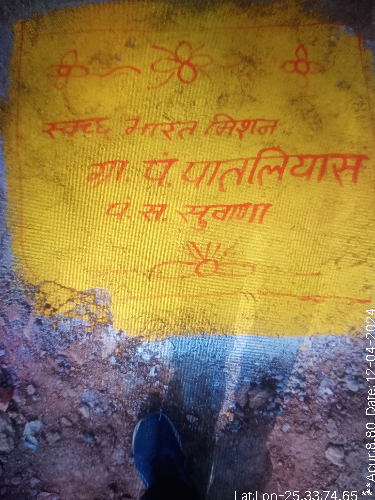 स्वच्छ भारत मिशन
ग्रा. पं. पातलियास
पं. स. सुवाणा
Lat:Lon-25.33:74.65 **Acur:8.80 Date:12-04-2024